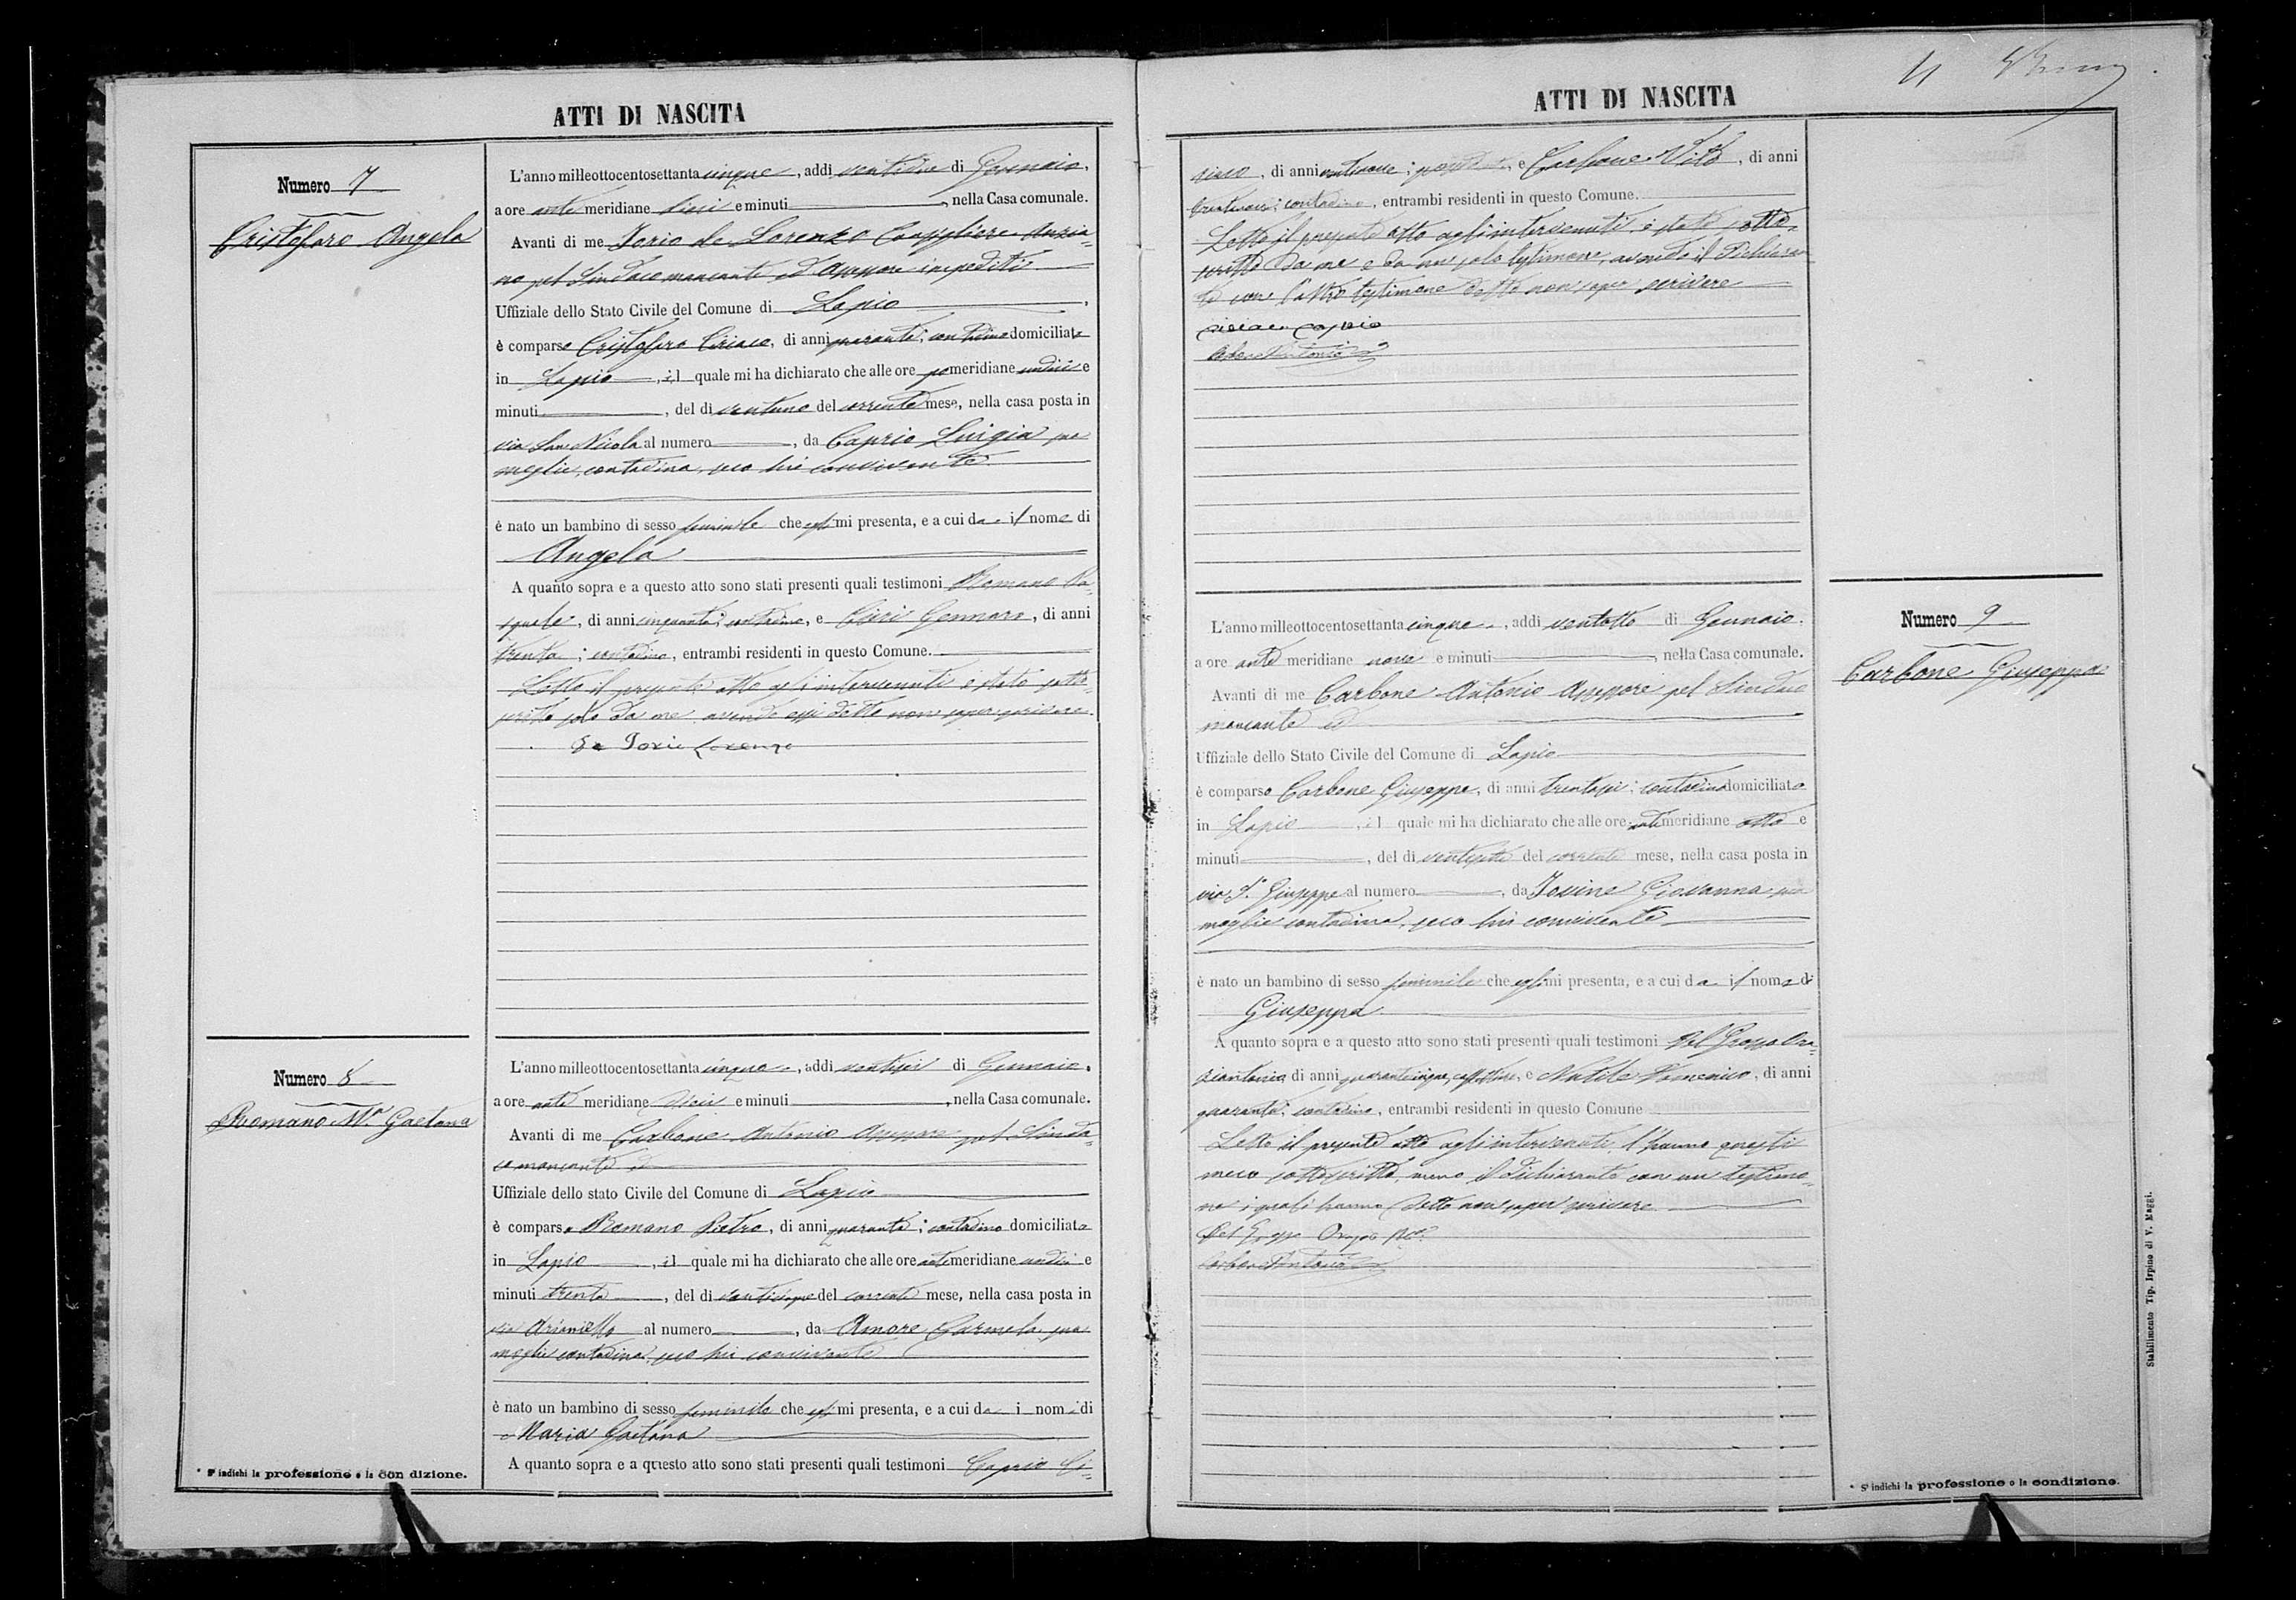 ATTI DI NASCITA
Numero 7
Cristofaro Angela
L'anno milleottocentosettanta cinque, addì ventidue di Gennaio,
a ore anti meridiane dieci e minuti, nella Casa comunale.
Avanti di me Iorio de Lorenzo Consigliere Anzia-
no pel Sindaco mancante ed Assessore impediti
Uffiziale dello Stato Civile del Comune di Lapio,
è comparso Cristofaro Ciriaco, di anni quaranta; contadino domiciliato
in Lapio, il quale mi ha dichiarato che alle ore pomeridiane undici e
minuti, del dì ventuno del corrente mese, nella casa posta in
via San Nicola al numero, da Caprio Luigia sua
moglie, contadina, seco lui convivente
è nato un bambino di sesso feminile che egli mi presenta, e a cui da il nome di
Angela
A quanto sopra e a questo atto sono stati presenti quali testimoni Romano Pa-
squale, di anni cinquanta; contadino, e Gennaro, di anni
trenta; contadino, entrambi residenti in questo Comune.
Letto il presente atto agli intervenuti è stato sotto-
scritto solo da me avendo essi detto non saper scrivere.
De Iorio Lorenzo
Numero 8
Romano Ma Gaetana
L'anno milleottocentosettanta cinque, addì ventisei di Gennaio.
a ore anti meridiane dieci e minuti, nella Casa comunale.
Avanti di me Carbone Antonio Assessore pel Sinda-
co mancante
Uffiziale dello stato Civile del Comune di Lapio
è comparso Romano Pietro, di anni quaranta; contadino domiciliato
in Lapio, il quale mi ha dichiarato che alle ore antimeridiane undici e
minuti trenta, del dì del corrente mese, nella casa posta in
via Arianiello al numero, da Amore Carmela sua
moglie contadina, seco lui convivente
è nato un bambino di sesso feminile che egli mi presenta, e a cui da i nomi di
Maria Gaetana
A quanto sopra e a questo atto sono stati presenti quali testimoni Caprio Ci-
* S' indichi la professione o la condizione.
ATTI DI NASCITA
riaco, di anni ventinove; e Carbone Vito, di anni
contadino, entrambi residenti in questo Comune.
Letto il presente atto agli intervenuti è stato sotto-
scritto da me e da un solo testimone, avendo il Dichiaran-
te con l'altro testimone detto non saper scrivere
Ciriaco Caprio
Carbone Antonio
L'anno milleottocentosettanta cinque, addì ventotto di Gennaio.
a ore anti meridiane nove e minuti, nella Casa comunale.
Avanti di me Carbone Antonio Assessore pel Sindaco
mancante ed
Uffiziale dello Stato Civile del Comune di Lapio
è comparso Carbone Giuseppe, di anni trentasei; contadino domiciliato
in Lapio, il quale mi ha dichiarato che alle ore antimeridiane otto e
minuti, del dì ventisette del corrente mese, nella casa posta in
via S. Giuseppe al numero, da Iovine Giovanna sua
moglie contadina, seco lui convivente
è nato un bambino di sesso feminile che egli mi presenta, e a cui da il nome di
Giuseppa
A quanto sopra e a questo atto sono stati presenti quali testimoni Del Grosso Ora-
ziantonio, di anni quarantacinque, e Nutile Domenico, di anni
quaranta; contadino, entrambi residenti in questo Comune
Letto il presente atto agli intervenuti, l'hanno questi
meco sottoscritto, meno il dichiarante con un testimo-
ne i quali hanno detto non saper scrivere
Del Grosso
Carbone Antonio
Numero 9
Carbone Giuseppa
* S' indichi la professione o la condizione.
Stabilimento Tip. Irpino di V. Maggi.